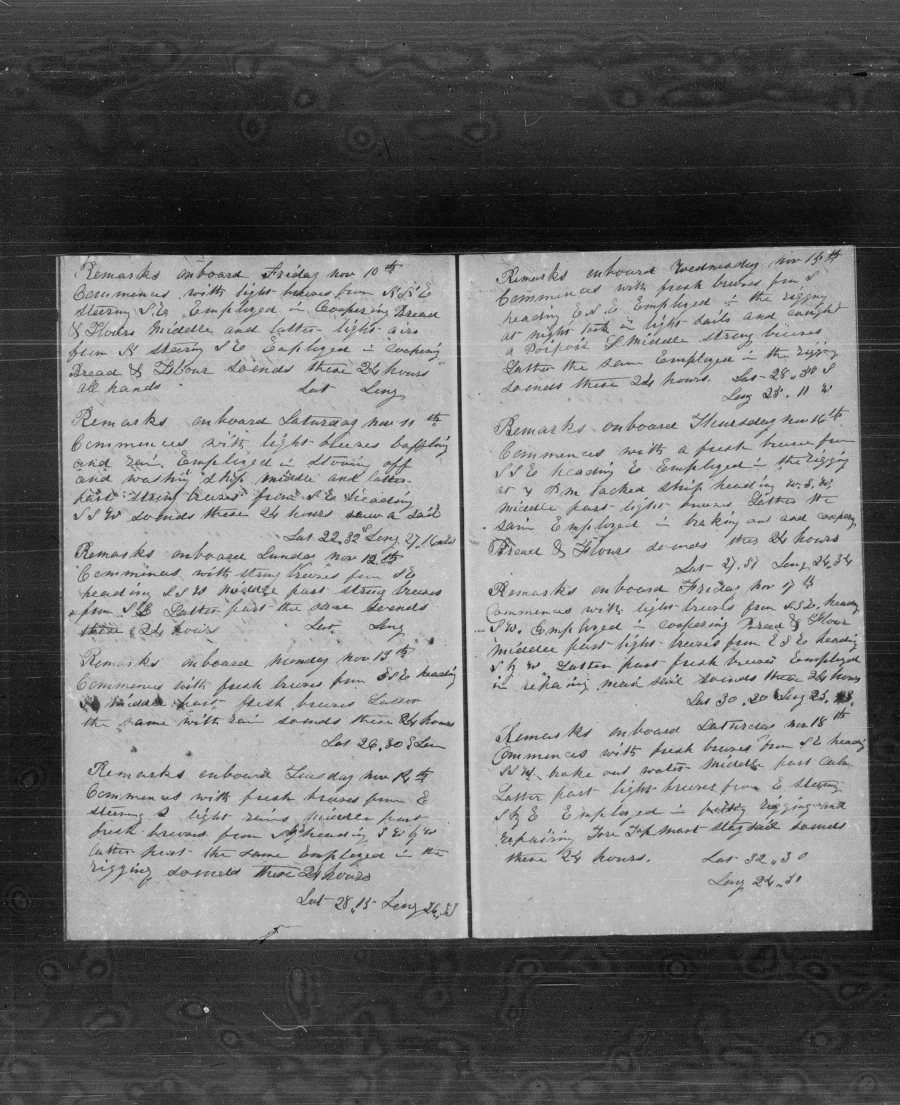 Remarks onboard Friday nov 10th
Commences with light breezes from N N E
Steering S.E. Employed in Coopering Bread
& Flours Middle and latter light airs
from N steering S E Employed in coopering
Bread & Flour So ends these 24 hours
all hands Lat Long
Remarks onboard Saturday nov 11th
Commences with light breezes baffling
and rain. Employed in Stowing off
and washing ship middle and latter
part strong breezes from S.E. heading
S S W So ends these 24 hours saw a sail
Lat 22,32 S Long 27,16
Remarks onboard Sunday nov 12th
Commences with strong breezes from S E
heading S S W middle part strong breezes
from S E Latter part the same So ends
these 24 hours Lat Long
Remarks onboard Monday nov 13th
Commences with fresh breezes from E S E heading
S middle part fresh breezes Latter
the same with rain So ends these 24 hours
Lat 26,30 S Lon
Remarks onboard Tuesday nov 14th
Commences with fresh breezes from E
steering S light rains middle part
fresh breezes from heading S W by W
latter part the same Employed in the
rigging So ends these 24 hours
Lat 28,15 Long 26,
Remarks onboard Wednesday nov 15th
Commences with fresh breezes from S
heading E S E Employed in the rigging
at night took in light sails and caught
a Poipose middle strong breezes
Latter the same Employed in the rigging
So ends these 24 hours. Lat 28,,30 S
Long 25,,11 W
Remarks onboard Thursday nov 16th
Commences with a fresh breeze from
S S E heading E Employed in the rigging
at 4 P.m tacked ship heading W.S.W.
middle part light breezes. Latter the
same Employed in breaking out and coopering
Bread & Flours So ends these 24 hours
Lat 29,51 Long 24,34
Remarks onboard Friday Nov 17th
Commences with light breezes from S.S.E. heading
S W. Employed in coopering Bread & Flour
middle part light breezes from E S E heading
S by W Latter part fresh breezes Employed
in repairing main sail So ends these 24 hours
Lat 30,20 Long 25,
Remarks onboard Saturday nov 18th
Commences with fresh breezes from S E heading
broke out water middle part calm
Latter part light breezes from E steering
S by E Employed in rigging and
repairing Fore Top mast Stay sail So ends
these 24 hours. Lat 32,,30
Long 24,,30